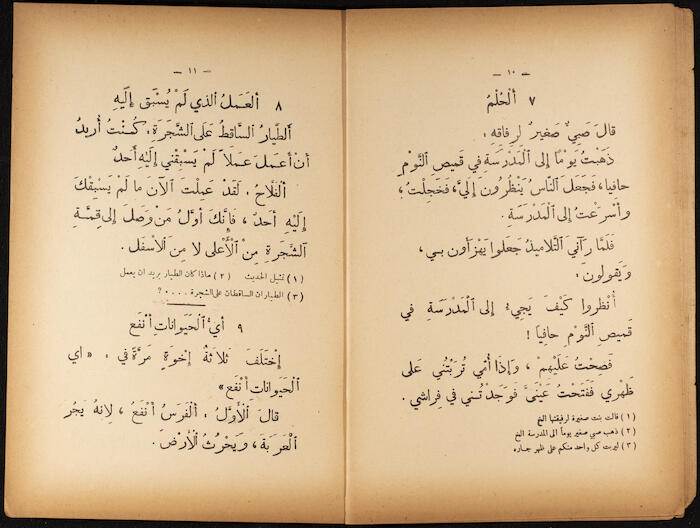 — ١٠ —
٧ اَلْحُلْمُ
قالَ صَبيٌّ صَغيرٌ لرِفاقِهِ:
ذَهَبْتُ يَوْمًا إلى المَدْرَسَةِ في قَميصِ النَّوْمِ
حافيا، فَجَعَلَ النّاسُ يَنْظُرُونَ إليَّ، فَخَجِلْتُ؛
وأسرَعْتُ إلى المَدْرَسَةِ.
فَلَمّا رَآني التَّلاميذُ جَعَلوا يَهْزَأونَ بي،
وَيَقولونَ:
أُنْظُروا كَيْفَ يَجيءُ إلى المَدْرَسَةِ في
قَميصِ النَّوْمِ حافِيا!
فَصِحْتُ عَلَيهِمْ، وَإذا أُمّي تُرَبِّتُني عَلى
ظَهْري فَفَتَحْتُ عَيْنَيَّ فَوَجَدْتُني في فِراشي.
(١) قالت بنت صغيرة لرفيقتها الخ
(٢) ذهب صبي صغير يوماً الى المدرسة الخ
(٣) ليربت كل واحد منكم على ظهر جاره
— ١١ —
٨ اَلعَمَلُ الذي لَمْ يُسْبَق إلَيْهِ
اَلطَّيّارُ السّاقطُ عَلى الشَّجَرَةِ. كُنْتُ أُريدُ
أنْ أعمَلَ عَمَلاً لَمْ يَسْبِقْني إلَيْهِ أحَدٌ
اَلفَلاّحُ. لَقَدْ عَمِلْتَ الآنَ ما لَمْ يَسْبِقْكَ
إلَيْهِ أحَدٌ، فَإنَّكَ أوَّلُ مَنْ وَصَلَ إلى قِمَّةِ
الشَّجَرَةِ مِنْ الأَعْلى لا مِنَ الأسْفَلِ.
(١) تمثيل الحديث (٢) ماذا كان الطيار يريد ان يعمل
(٣) الطياران الساقطان على الشجرة ....؟
٩ أيُّ اَلْحَيَواناتِ أَنْفَع
إخْتَلَفَ ثَلاثَةُ إخْوَةٍ مَرَّةً في: «اي
الْحَيَواناتِ أَنْفَع»
قالَ الأَوَّلُ. ألفَرَسُ أَنْفَعُ، لِانَهُ يَجُرّ
العَرَبَةَ، وَيَحْرُثُ الأَرْضَ.